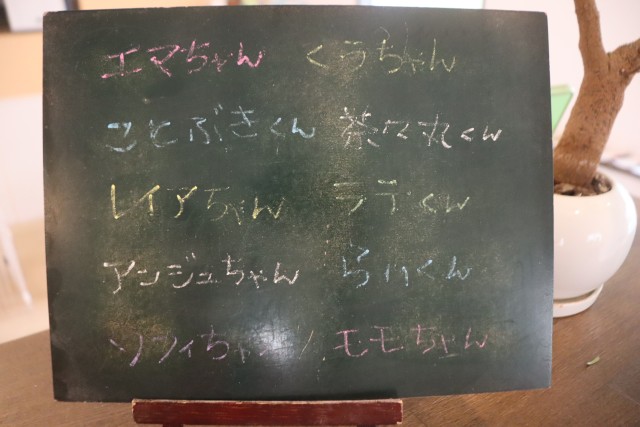 エマちゃん くうちゃん
ことぶきくん 茶々丸くん
レイアちゃん ララくん
アンジュちゃん らいくん
ソフィちゃん モモちゃん